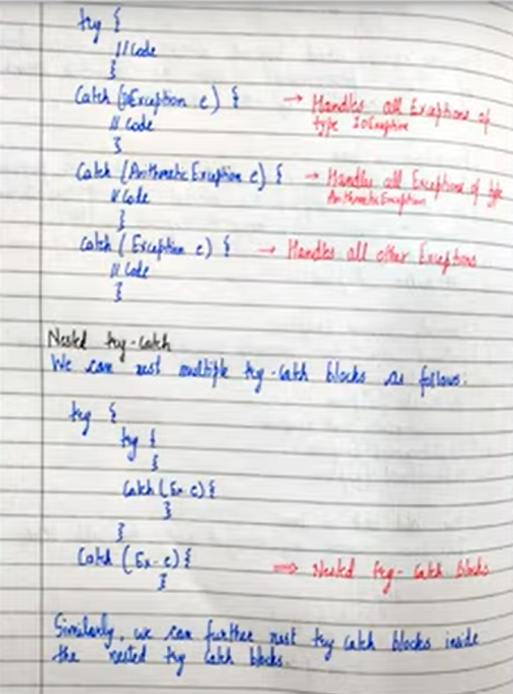 try {
// Code
}
Catch (IOException e) { → Handles all Exceptions of
type IOException
// Code
}
Catch (Arithmetic Exception e) { → Handles all Exceptions of type
Arithmetic Exception
// Code
}
Catch ( Exception e) { → Handles all other Exceptions
// Code
}
Nested try-catch
We can nest multiple try-catch blocks as follows:
try {
try {
}
Catch ( Ex e) {
}
}
Catch ( Ex- e) {
} ⇒ Nested try-catch blocks
Similarly, we can further nest try catch blocks inside
the nested try catch blocks.